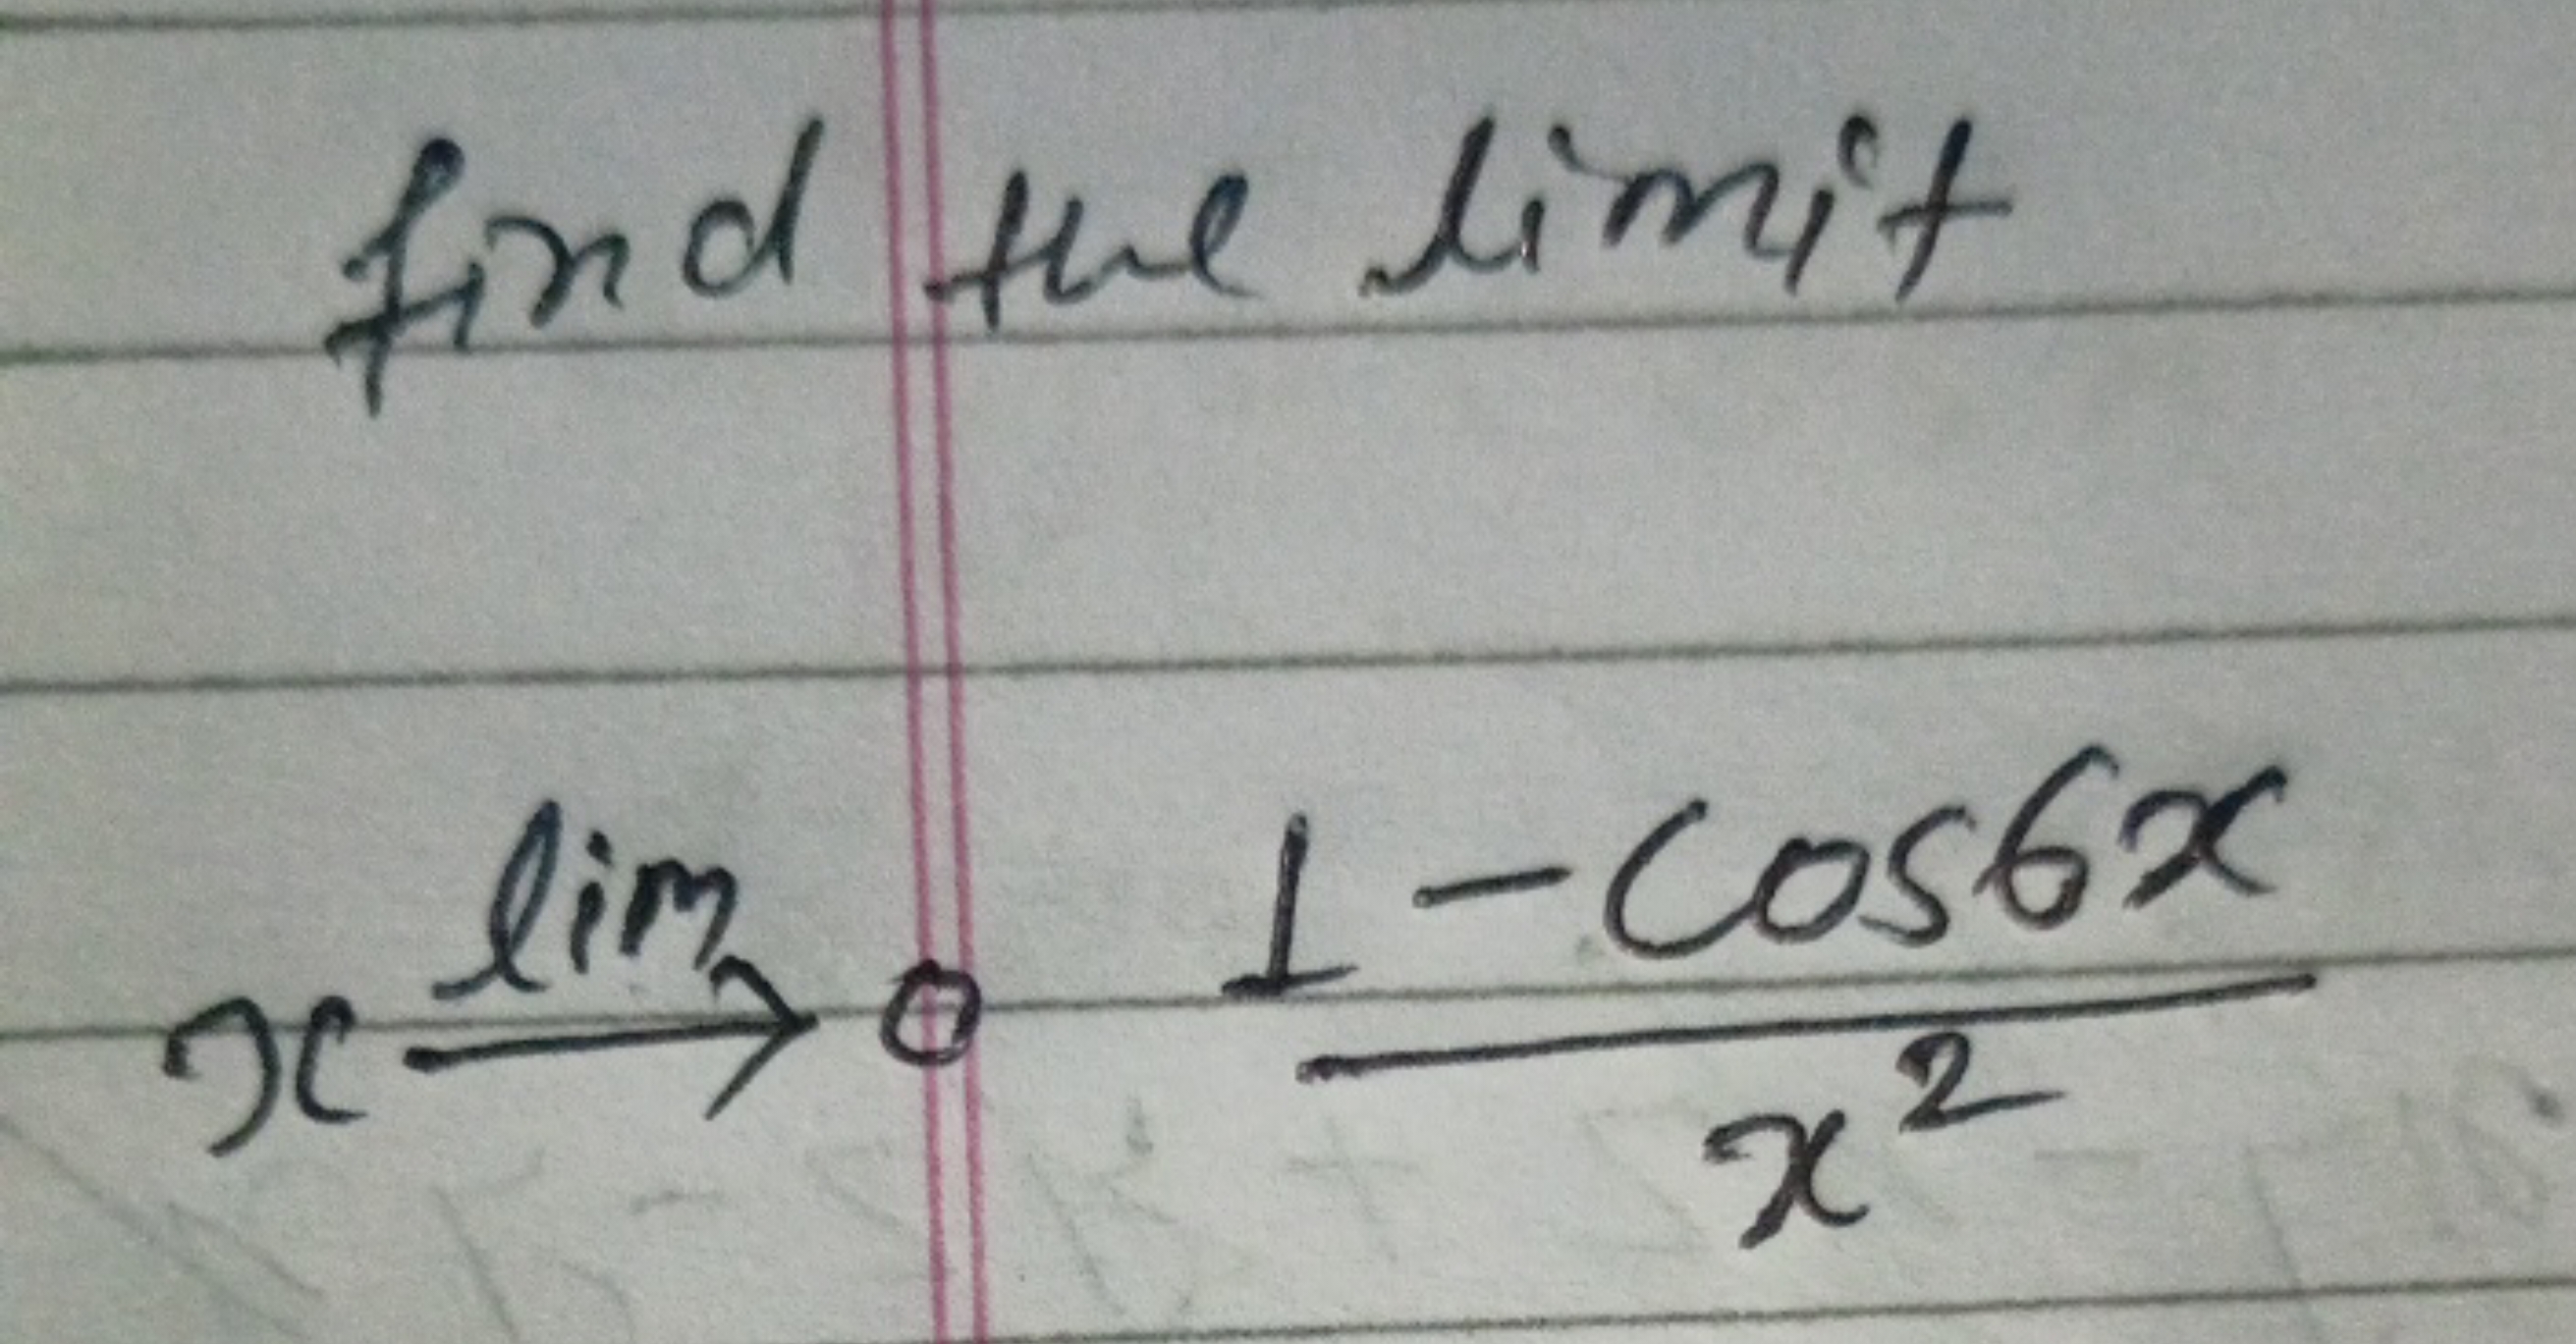 find the limit
lim
x → 0 1 - cos6x
x²